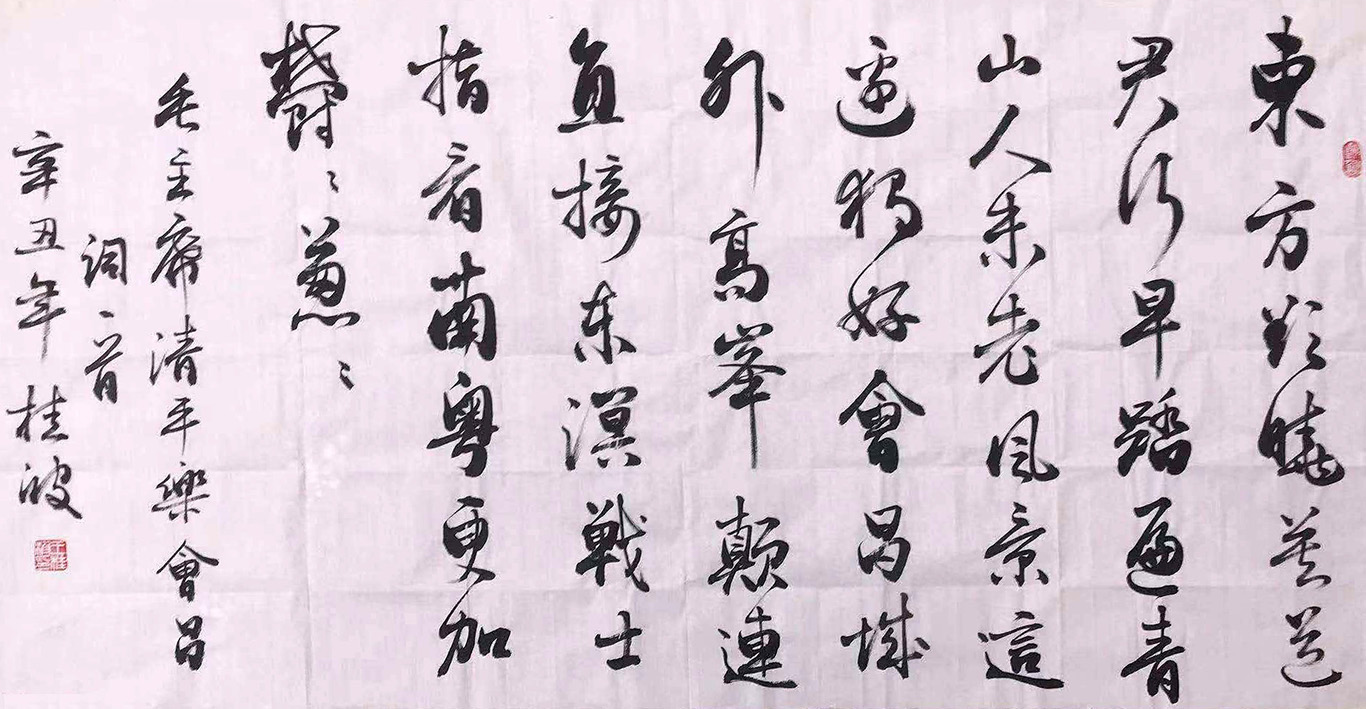 東方欲曉莫道
君行早踏遍青
山人未老风景這
邊獨好會昌城
外高峯顛連
直接东溟戰士
指看南粵更加
鬱〻蔥〻
毛主席清平樂會昌
詞一首
辛丑年桂波